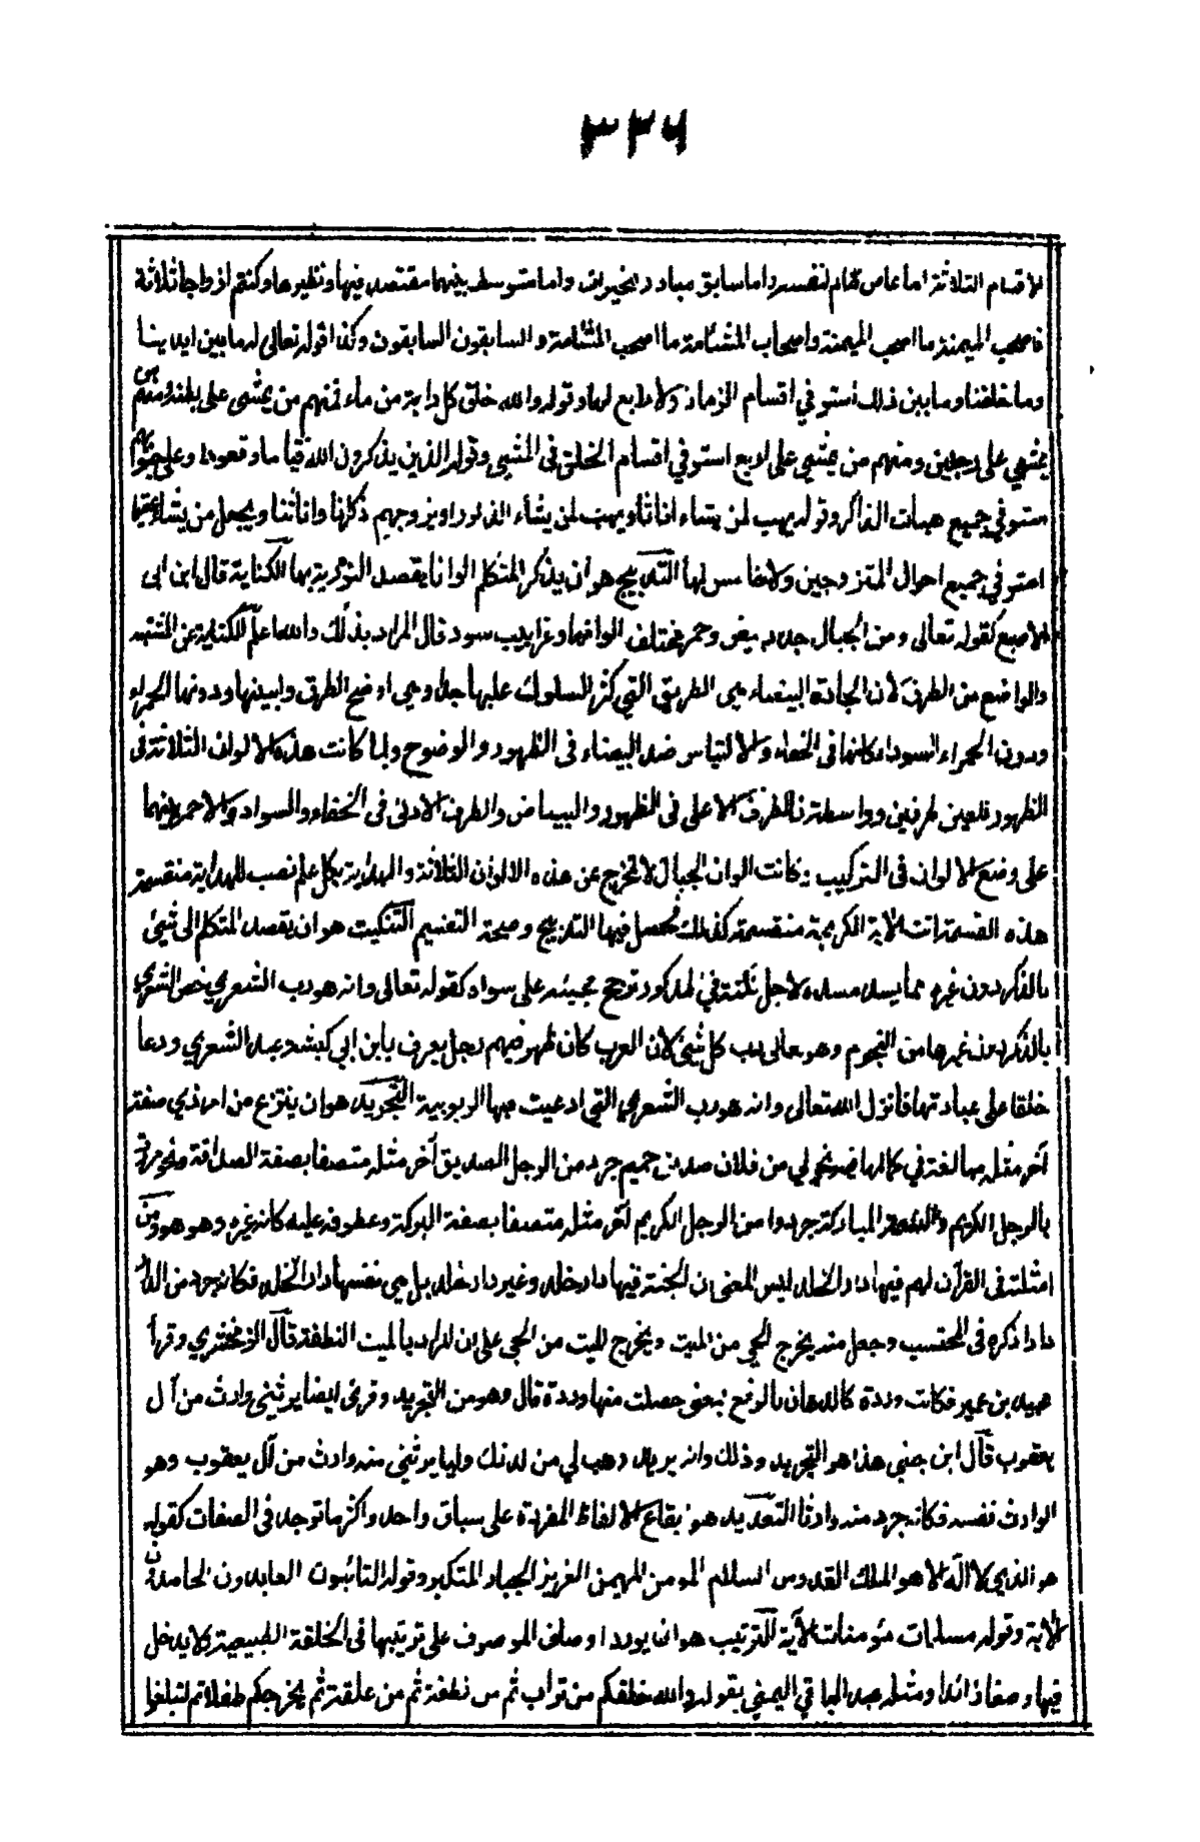 ٣٣٦
الاقسام الثلاثة اما عاص ظالم لنفسه واما سابق مبادر بخيرات واما متوسط بينهما مقتصد فيها ونظيرها وكنتم ازواجا ثلاثة
فاصحب الميمنة ما اصحب الميمنة واصحاب المشئمة ما اصحب المشئمة والسابقون السابقون وكذا قوله تعالى له ما بين ايدينا
وما خلفنا وما بين ذلك استوفي اقسام الزمان ولا رابع لها وقوله والله خلق كل دابة من ماء فمنهم من يمشي على بطنه ومنهم من
يمشي على رجلين ومنهم من يمشي على اربع استوفي اقسام الخلق في المشي وقوله الذين يذكرون الله قياما وقعودا وعلى جنوبهم
استوفي جميع هيات الذاكر وقوله يهب لمن يشاء اناثا ويهب لمن يشاء الذكور او يزوجهم ذكرانا واناثا ويجعل من يشاء عقيما
استوفي جميع احوال المتزوجين ولا خامس لها التدبيج هو ان يذكر المتكلم الوانا يقصد التورية بها والكناية قال ابن ابي
الاصبع كقوله تعالى ومن الجبال جدد بيض وحمر مختلف الوانها وغرابيب سود قال المراد بذلك والله اعلم الكناية عن المشتبه
والواضح من الطرق لان الجادة البيضاء هي الطريق التي كثر السلوك عليها جدا وهي اوضح الطرق وابينها ودونها الحمراء
ودون الحمراء السوداء كانها في الخفاء والالتباس ضد البيضاء في الظهور والوضوح ولما كانت هذه الالوان الثلاثة في
الظهور للعين طرفين وواسطة فالطرف الاعلى في الظهور والبياض والطرف الادنى في الخفاء والسواد والاحمر بينهما
على وضع الالوان في التركيب وكانت الوان الجبال لا تخرج عن هذه الالوان الثلاثة والهداية بكل علم نصب للهداية منقسمة
هذه القسمة اتت الاية الكريمة منقسمة كذلك فحصل فيها التدبيج وصحة التقسيم التنكيت هو ان يقصد المتكلم الى شيئ
بالذكر دون غيره مما يسد مسده لاجل نكتة في المذكور ترجح مجيئه على سواه كقوله تعالى وانه هو رب الشعري خص الشعري
بالذكر دون غيرها من النجوم وهو تعالى رب كل شيئ لان العرب كان ظهر فيهم رجل يعرف بابن ابي كبشة عبد الشعري ودعا
خلقا على عبادتها فانزل الله تعالى وانه هو رب الشعري التي ادعيت فيها الربوبية التجريد هو ان ينتزع من امر ذي صفة
آخر مثله مبالغة في كمالها فيه نحو لي من فلان صديق حميم جرد من الرجل الصديق آخر مثله متصفا بصفة الصداقة ونحو مررت
بالرجل الكريم والنسمة المباركة جردوا من الرجل الكريم آخر مثله متصفا بصفة البركة وعطوفه عليه كانه غيره وهو هو ومن
امثلته في القرآن لهم فيها دار الخلد ليس المعنى ان الجنة فيها دار خلد وغير دار خلد بل هي نفسها دار الخلد فكانه جرد من الدار
دارا ذكره في المحتسب وجعل منه يخرج الحي من الميت ويخرج الميت من الحي على ان المراد بالميت النطفة قال الزمخشري وقرأ
عبيد بن عمير فكانت وردة كالدهان بالرفع بمعنى حصلت منها وردة قال وهو من التجريد وقرئ ايضا يرثني وارث من آل
يعقوب قال ابن جني هذا هو التجريد وذلك وانه يريد وهب لي من لدنك وليا يرثني منه وارث من آل يعقوب وهو
الوارث نفسه فكانه جرد منه وارثا التعديد هو ايقاع الالفاظ المفردة على سياق واحد واكثر ما توجد في الصفات كقوله
هو الذي لا اله الا هو الملك القدوس السلام المومن المهيمن العزيز الجبار المتكبر وقوله التائبون العابدون الحامدون
الاية وقوله مسلمات مؤمنات الآية الترتيب هو ان يورد اوصاف الموصوف على ترتيبها في الخلقة الطبيعية ولا يدخل
فيها وصفا زائدا ومثله عبد الباقي اليمني بقوله والله خلقكم من تراب ثم من نطفة ثم من علقة ثم يخرجكم طفلا ثم لتبلغوا